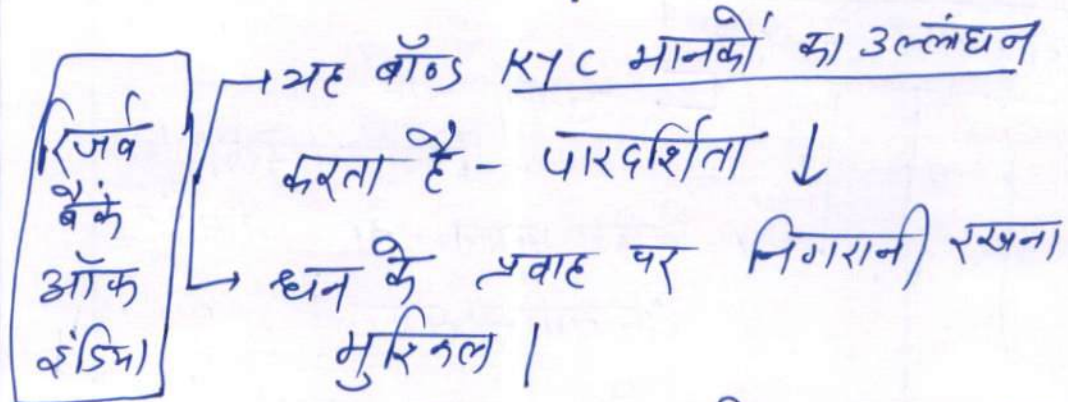 रिजर्व
बैंक
ऑफ
इंडिया
→ यह बॉण्ड KYC मानकों का उल्लंघन
करता है - पारदर्शिता ↓
→ धन के प्रवाह पर निगरानी रखना
मुश्किल |